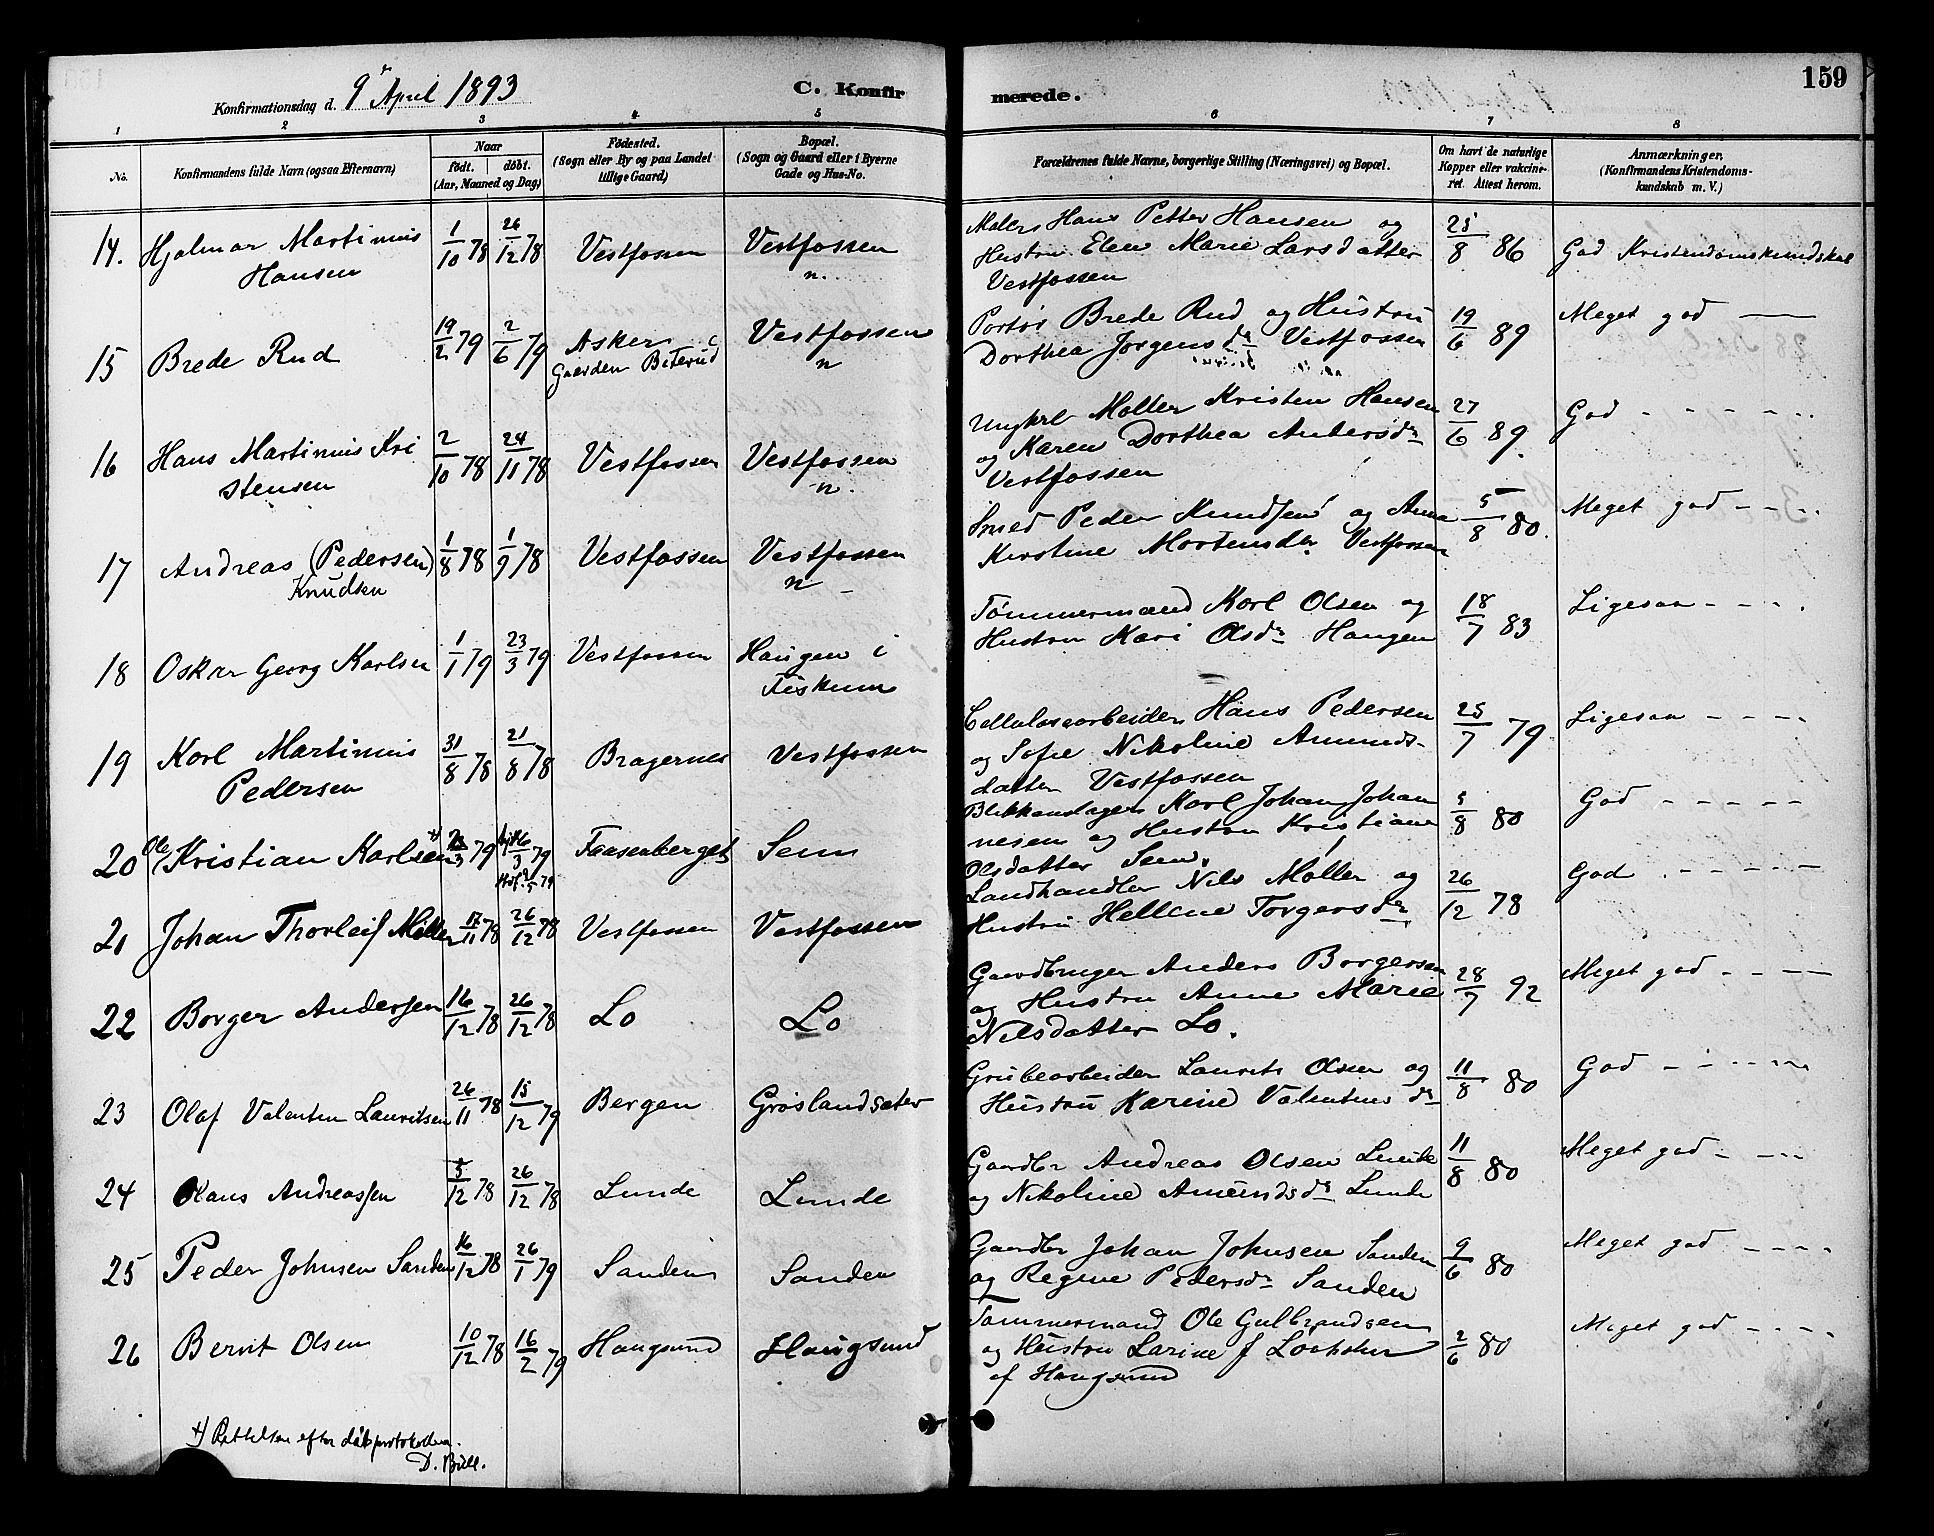 Konfirmationsdag d. 9de April 1893
C. Konfir
merede.
159
1 2 3 4 5 6 7 8
No.
Konfirmandens fulde Navn (ogsaa Efternavn)
Naar
født. døbt.
(Aar, Maaned og Dag)
Fødested.
(Sogn eller By og paa Landet
tillige Gaard)
Bopæl.
(Sogn og Gaard eller i Byerne
Gade og Hus-No.
Forældrenes fulde Navne, borgerlige Stilling (Næringsvei) og Bopæl.
Om havt de naturlige
Kopper eller vakcine-
ret. Attest herom.
Anmærkninger.
(Konfirmandens Kristendoms-
kundskab m. V.)
14. Hjalmar Martinius 1/10 78 26/12 78 Vestfossen Vestfossen
Hansen n.
Maler Hans Petter Hansen og
Hustru Elen Marie Larsdatter
Vestfossen
25/8 86 God Kristendomskundskab
15 Brede Rud 19/2 79 2/6 79 Asker Vestfossen
Gaarden Biterud n
Portør Brede Rud og Hustru
Dorthea Jørgensdr Vestfossen
19/6 89 Meget god
16 Hans Martinius Kri 2/10 78 24/11 78 Vestfossen Vestfossen
stensen n.
Ungkrl Møller Kristen Hansen
og Karen Dorthea Andersdr
Vestfossen
27/6 89. God - - - - -
17 Andreas (Pedersen) 1/8 78 1/9 78 Vestfossen Vestfossen
Knudsen n
Smed Peder Knudsen og Anna
Kirstine Mortensdr. Vestfossen
5/8 80. Meget god - - - -
18 Oskar Georg Karlsen 1/1 79 23/3 79 Vestfossen Haugen i
Fiskum
Tømmermand Karl Olsen og
Hustru Kari Olsdr Haugen
18/7 83 Ligesaa - - - -
19 Karl Martinius 31/8 78 21/8 78 Bragernes Vestfossen
Pedersen
Cellulosearbeider Hans Pedersen
og Sofie Nikoline Amunds-
datter Vestfossen
25/7 79 Ligesaa - - - -
20 Ole Kristian Karlsen +) /3 79 /3 79 Faasenberget Sem
Blikkenslager Karl Johan Johan
nesen og Hustru Kristiane
Olsdatter Sem.
5/8 80 God - - - - -
21 Johan Thorleif Møller 17/11 78 26/12 78 Vestfossen Vestfossen
Landhandler Nils Møller og
Hustru Hellene Torgersdr
26/12 78 God - - - - -
22 Borger Anderssen 16/12 78 26/12 78 Lo Lo
Gaardbruger Anders Borgersen
og Hustru Anne Marie
Nilsdatter Lo.
28/7 92 Meget god - - - -
23 Olaf Valentin Lauritsen 26/11 78 15/12 79 Bergen Grøslandsæter
Grubearbeider Laurits Olsen og
Hustru Karine Valentinsdr
11/8 80 God - - - - -
24 Klaus Andreassen 5/12 78 26/12 78 Lunde Lunde
Gaardbr Andreas Olsen Lunde
og Nikoline Amundsdr Lunde
11/8 80 Meget god - - - -
25 Peder Johnsen Sanden 16/12 78 26/1 79 Sanden Sanden
Gaardbr Johan Johnsen Sanden
og Regine Pedersdr Sanden
9/6 80 Meget god - - - -
26 Bernt Olsen 10/12 78 16/2 79 Haugsund Haugsund
Tømmermand Ole Gulbrandsen
og Hustru Larine f
af Haugsund
2/6 80 Meget god - - - -
+) Rettelse efter dåbsprotokollen.
D. Bull.